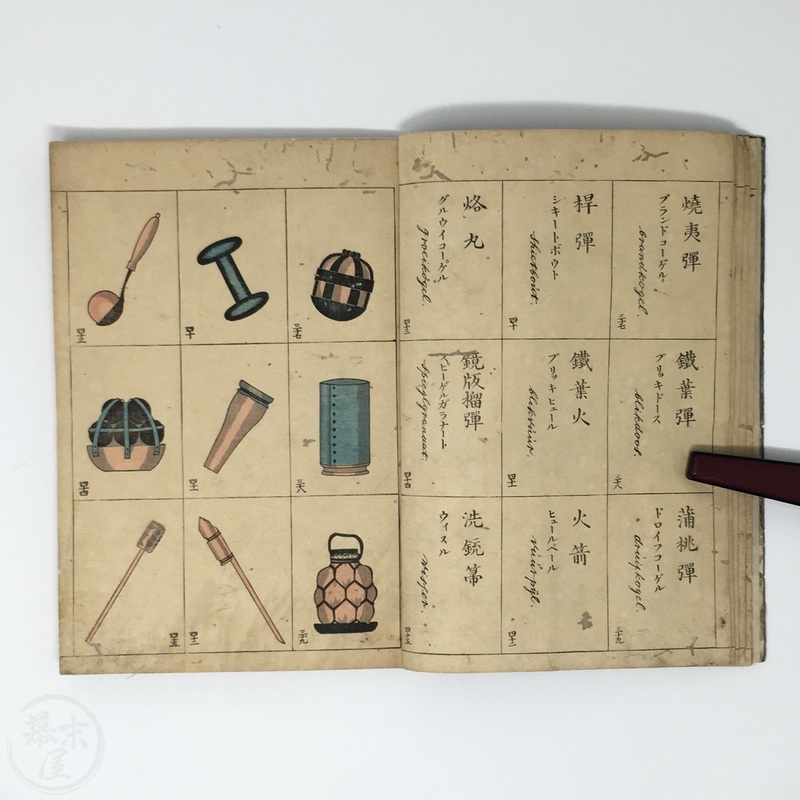 燒夷彈
ブランドコーゲル
brandkogel.
三十七
鐵葉彈
ブリッキドース
blikdoos.
三十八
蒲桃彈
ドロイフコーゲル
druifkogel.
三十九
桿彈
シキートボウト
Shietbout.
四十
鐵葉火
ブリッキヒュール
blikvúúr.
四十一
火箭
ヒュールペール
vúúrpÿl.
四十二
烙丸
グルウイコーゲル
groeikogel.
四十三
鏡版榴彈
スピーゲルガラナート
spieglgranaat.
四十四
洗銃箒
ウィスル
wisser.
四十五
三十七
三十八
三十九
四十
四十一
四十二
四十三
四十四
四十五
幕末屋